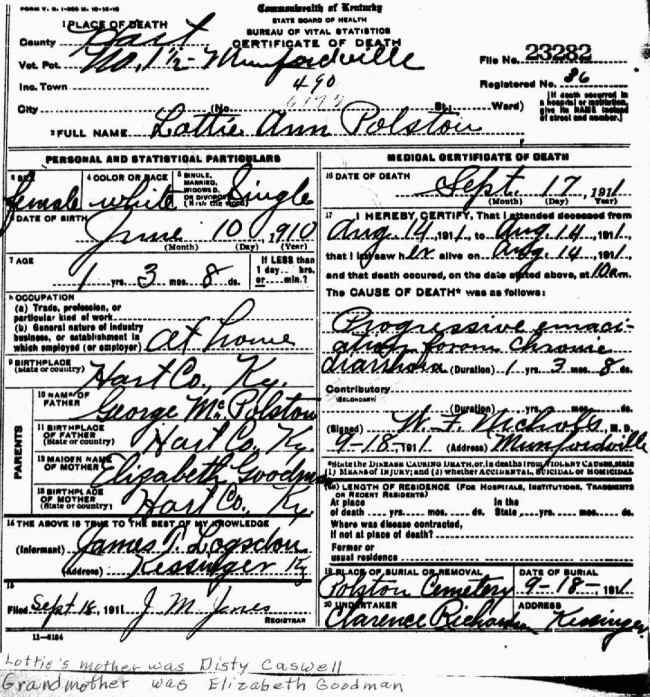 FORM V. S. 1-
Commonwealth of Kentucky
STATE BOARD OF HEALTH
BUREAU OF VITAL STATISTICS
CERTIFICATE OF DEATH
1 PLACE OF DEATH
County Hart
Vot. Pct. No. 1 1/2 - Munfordville
File No. 23282
Inc. Town 490
Registered No. 86
City (No. St.; Ward)
[If death occurred in a hospital or institution, give its NAME instead of street and number.]
2 FULL NAME Lottie Ann Polston
PERSONAL AND STATISTICAL PARTICULARS
3 SEX female
4 COLOR OR RACE white
5 SINGLE, MARRIED, WIDOWED, OR DIVORCED (Write the word) Single
6 DATE OF BIRTH
June 10, 1910
(Month) (Day) (Year)
7 AGE
1 yrs. 3 mos. 8 ds.
If LESS than 1 day... hrs. or.... min.?
8 OCCUPATION
(a) Trade, profession, or particular kind of work
(b) General nature of industry business, or establishment in which employed (or employer) at home
9 BIRTHPLACE
(State or country) Hart Co, Ky.
PARENTS
10 NAME OF FATHER George Mc Polston
11 BIRTHPLACE OF FATHER (State or country) Hart Co, Ky
12 MAIDEN NAME OF MOTHER Elizabeth Goodman
13 BIRTHPLACE OF MOTHER (State or country) Hart Co, Ky
14 THE ABOVE IS TRUE TO THE BEST OF MY KNOWLEDGE
(Informant) James T. Logsdon
(Address) Kessinger Ky
15
Filed Sept 18, 1911 J. M. Jones
REGISTRAR
11-6184
MEDICAL CERTIFICATE OF DEATH
16 DATE OF DEATH
Sept. 17, 1911
(Month) (Day) (Year)
17 I HEREBY CERTIFY, That I attended deceased from
Aug 14, 1911, to Aug 14, 1911,
that I last saw her alive on Aug 14, 1911,
and that death occured, on the date stated above, at 10 am.
The CAUSE OF DEATH* was as follows:
Progressive emaci-
ation from Chronic
diarrhoea (Duration) 1 yrs. 3 mos. 8 ds.
Contributory
(SECONDARY)
(Duration) yrs. mos. ds.
(Signed) W. F. Nichols, M. D.
9-18-, 1911 (Address) Munfordville
*State the DISEASE CAUSING DEATH, or, in deaths from VIOLENT CAUSES, state
(1) MEANS OF INJURY; and (2) whether ACCIDENTAL, SUICIDAL or HOMICIDAL
18 LENGTH OF RESIDENCE (FOR HOSPITALS, INSTITUTIONS, TRANSIENTS OR RECENT RESIDENTS)
At place of death .... yrs. .... mos. .... ds. In the State .... yrs. .... mos. .... ds.
Where was disease contracted, if not at place of death?
Former or usual residence
19 PLACE OF BURIAL OR REMOVAL
Polston Cemetery
DATE OF BURIAL
9-18-, 1911
20 UNDERTAKER
Clarence Richardson
ADDRESS
Kessinger
Lottie's mother was Disty Caswell
Grandmother was Elizabeth Goodman